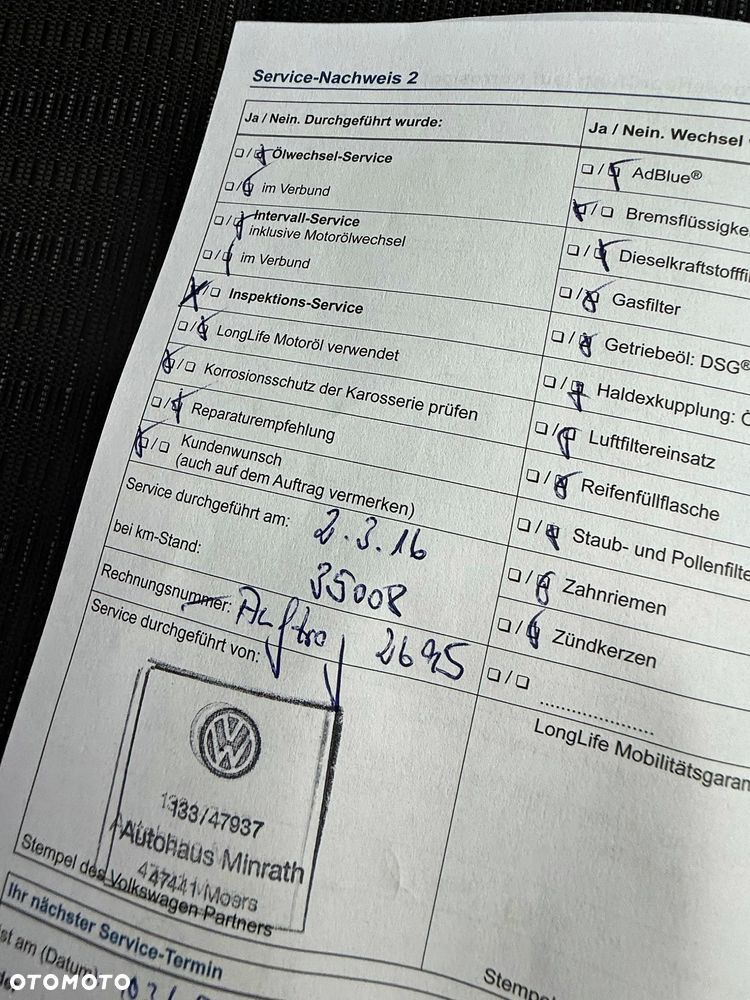 Service-Nachweis 2
Ja / Nein. Durchgeführt wurde:
❑ / ❑ Ölwechsel-Service
❑ / ❑ im Verbund
❑ / ❑ Intervall-Service
inklusive Motorölwechsel
❑ / ❑ im Verbund
❑ / ❑ Inspektions-Service
❑ / ❑ LongLife Motoröl verwendet
❑ / ❑ Korrosionsschutz der Karosserie prüfen
❑ / ❑ Reparaturempfehlung
❑ / ❑ Kundenwunsch
(auch auf dem Auftrag vermerken)
Service durchgeführt am: 2.3.16
bei km-Stand: 35008
Rechnungsnummer: Auftr 2695
Service durchgeführt von:
133/47937
Autohaus Minrath
47441 Moers
Stempel des Volkswagen Partners
Ja / Nein. Wechsel
❑ / ❑ AdBlue®
❑ / ❑ Bremsflüssigke
❑ / ❑ Dieselkraftstofffi
❑ / ❑ Gasfilter
❑ / ❑ Getriebeöl: DSG®
❑ / ❑ Haldexkupplung: Ö
❑ / ❑ Luftfiltereinsatz
❑ / ❑ Reifenfüllflasche
❑ / ❑ Staub- und Pollenfilte
❑ / ❑ Zahnriemen
❑ / ❑ Zündkerzen
❑ / ❑ ....................
LongLife Mobilitätsgaran
Stempe
Ihr nächster Service-Termin
ist am (Datum)
OTOMOTO